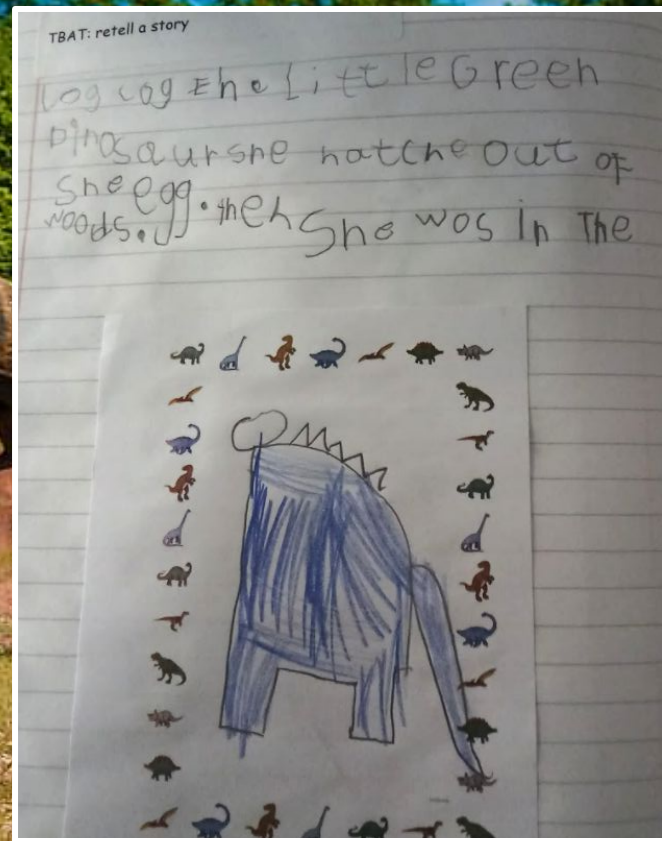 TBAT: retell a story
Log Log the Little Green
Dinosaur she hatche out of
she egg. then She wos in The
woods.